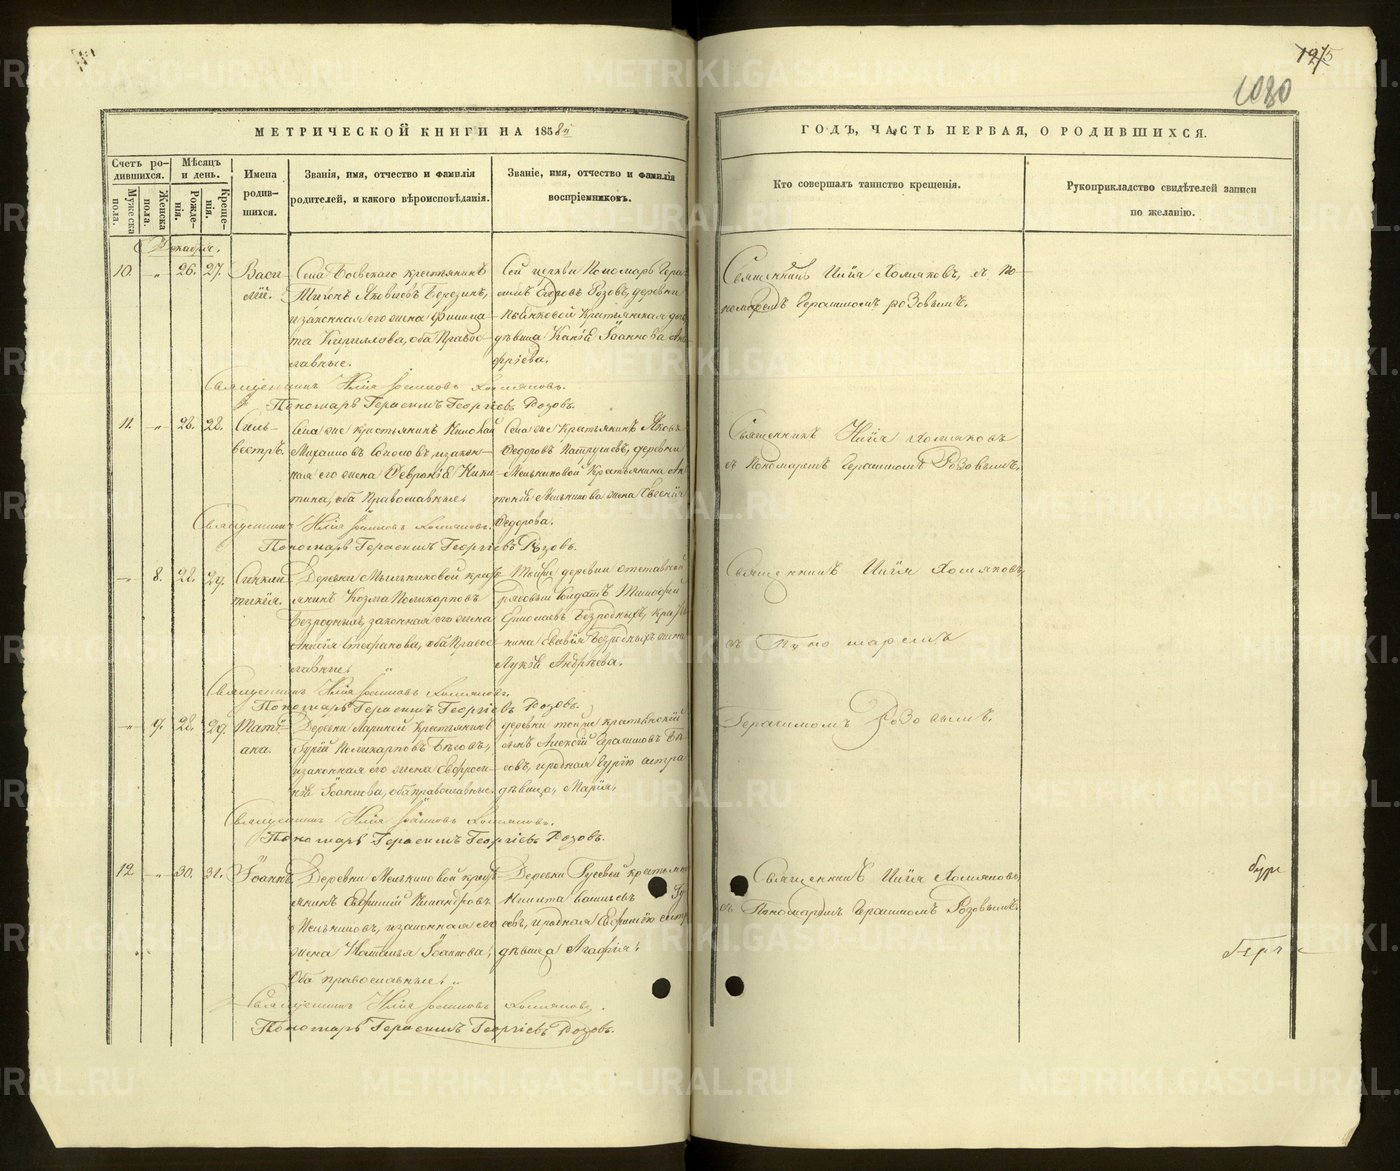 1275
1080
МЕТРИЧЕСКОЙ КНИГИ НА 1858й
ГОДЪ, ЧАСТЬ ПЕРВАЯ, О РОДИВШИХСЯ.
Счетъ ро-
дившихся.
Мужеска
пола.
Женска
пола.
Мѣсяцъ
и день.
Рожде-
нія.
Креще-
нія.
Имена
родив-
шихся.
Званія, имя, отчество и фамилія
родителей, и какого вѣроисповѣданія.
Званіе, имя, отчество и фамилія
воспріемниковъ.
Кто совершалъ таинство крещенія.
Рукоприкладство свидѣтелей записи
по желанію.
Декабря.
10. „ 26. 27.
Васи-
лій.
Села Боевскаго крестьянинъ
Яковлевъ Березинъ,
и законная его жена Филица-
та Кириллова, оба Правос-
лавные.
Сей церкви Пономарь Гера-
симъ Розовъ, деревни
Крестьянская до-
дѣвица Іоаннова
Священникъ Илія Холмяковъ, съ по-
номаремъ Герасимомъ Розовымъ.
Священникъ Илія Холмяковъ.
Пономарь Герасимъ Георгіевъ Розовъ.
11. „ 28. 28.
Силь-
вестръ.
Села же крестьянинъ Николай
Михайловъ и закон-
ная его жена Февронія Ники-
тина, оба Православные.
Села же Крестьянинъ Яковъ
Федоровъ Патрушевъ, деревни
Мельниковой Крестьянина
Мельникова жена Евгенія
Федорова.
Священникъ Илія Холмяковъ
съ Пономаремъ Герасимомъ Розовымъ.
Священникъ Илія Холмяковъ.
Пономарь Герасимъ Георгіевъ Розовъ.
„ 8. 28. 29.
Синкли-
тикія.
Деревни Мельниковой крест-
янинъ Козма Поликарповъ
Безродныхъ, законная его жена
Анисія Стефанова, оба Право-
славные.
Тойже деревни отставной
рядовой солдатъ Тимофей
Ермолаевъ Безродныхъ, крестья-
нина Савvія Безродныхъ жена
Лукія Андреева.
Священникъ Илія Холмяковъ
съ Пономаремъ
Священникъ Илія Холмяковъ.
Пономарь Герасимъ Георгіевъ Розовъ.
„ 9. 28. 29.
Тать-
яна.
Деревни Крестьянинъ
Гурій Поликарповъ Бѣсовъ,
и законная его жена Евфроси-
нія Іоаннова, оба православные.
деревни тойже крестьянскій
сынъ Алексій Герасимовъ Бѣ-
совъ, и родная Гурію сестра
дѣвица, Марія.
Герасимомъ Розовымъ.
Священникъ Илія Холмяковъ.
Пономарь Герасимъ Георгіевъ Розовъ.
12 „ 30. 31.
Іоаннъ.
Деревни Мельниковой крест-
янинъ Евфимій Никандровъ
Мельниковъ, и законная его
жена Наталья Іоаннова,
Оба православные.
Деревни Гусевой крестьянинъ
Никита Гу-
севъ, и родная Евфимію сестра
дѣвица Агафія.
Священникъ Илія Холмяковъ,
съ Пономаремъ Герасимомъ Розовымъ.
Священникъ Илія Холмяковъ.
Пономарь Герасимъ Георгіевъ Розовъ.
METRIKI.GASO-URAL.RU